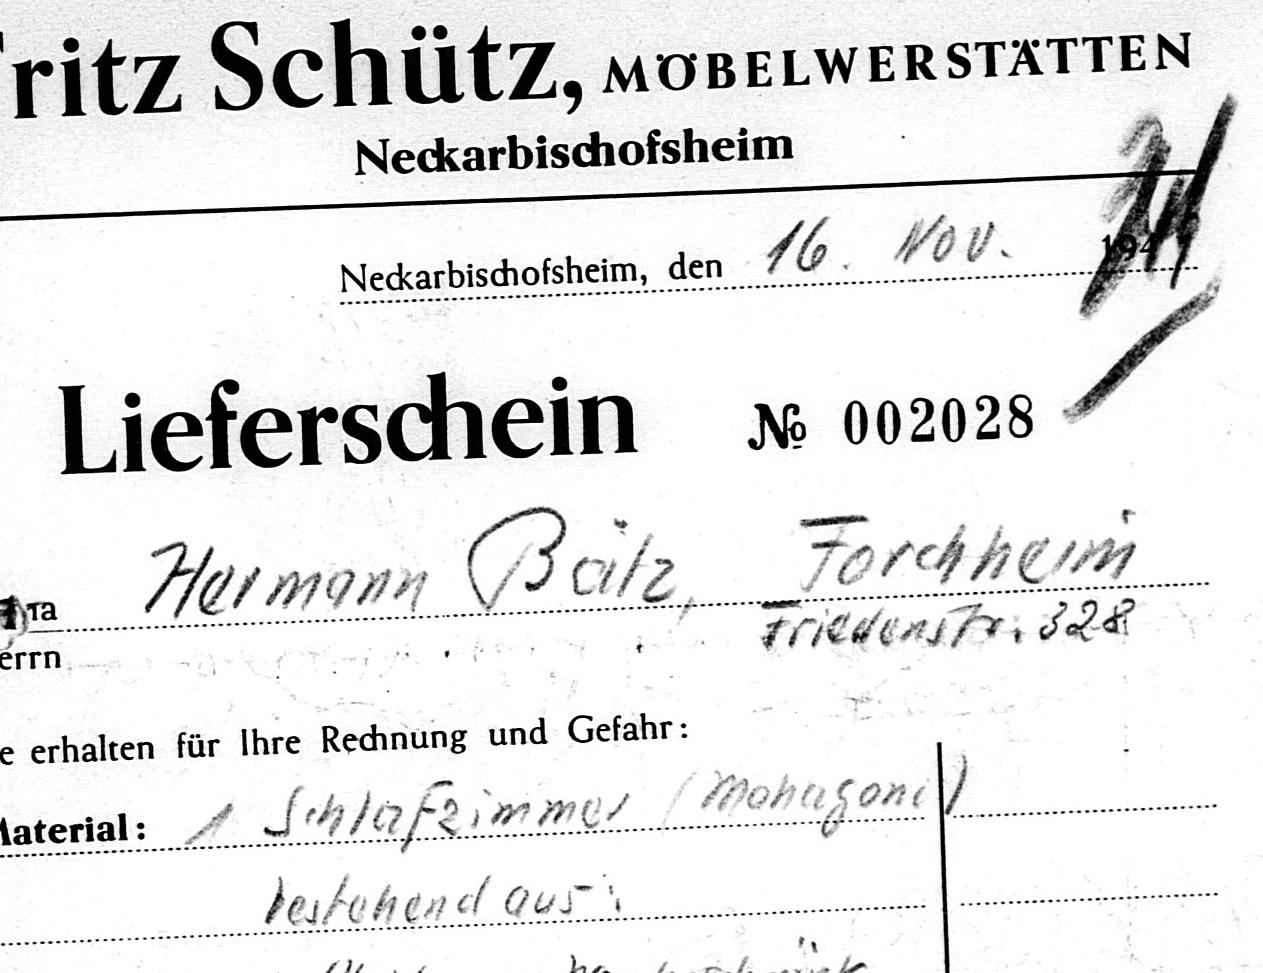 Fritz Schütz, MÖBELWERSTÄTTEN
Neckarbischofsheim
Neckarbischofsheim, den 16. Nov. 194
Lieferschein № 002028
Hermann Bätz, Forchheim
Friedenstr. 328
errn
e erhalten für Ihre Rechnung und Gefahr:
Material: 1 Schlafzimmer (Mahagoni)
bestehend aus: